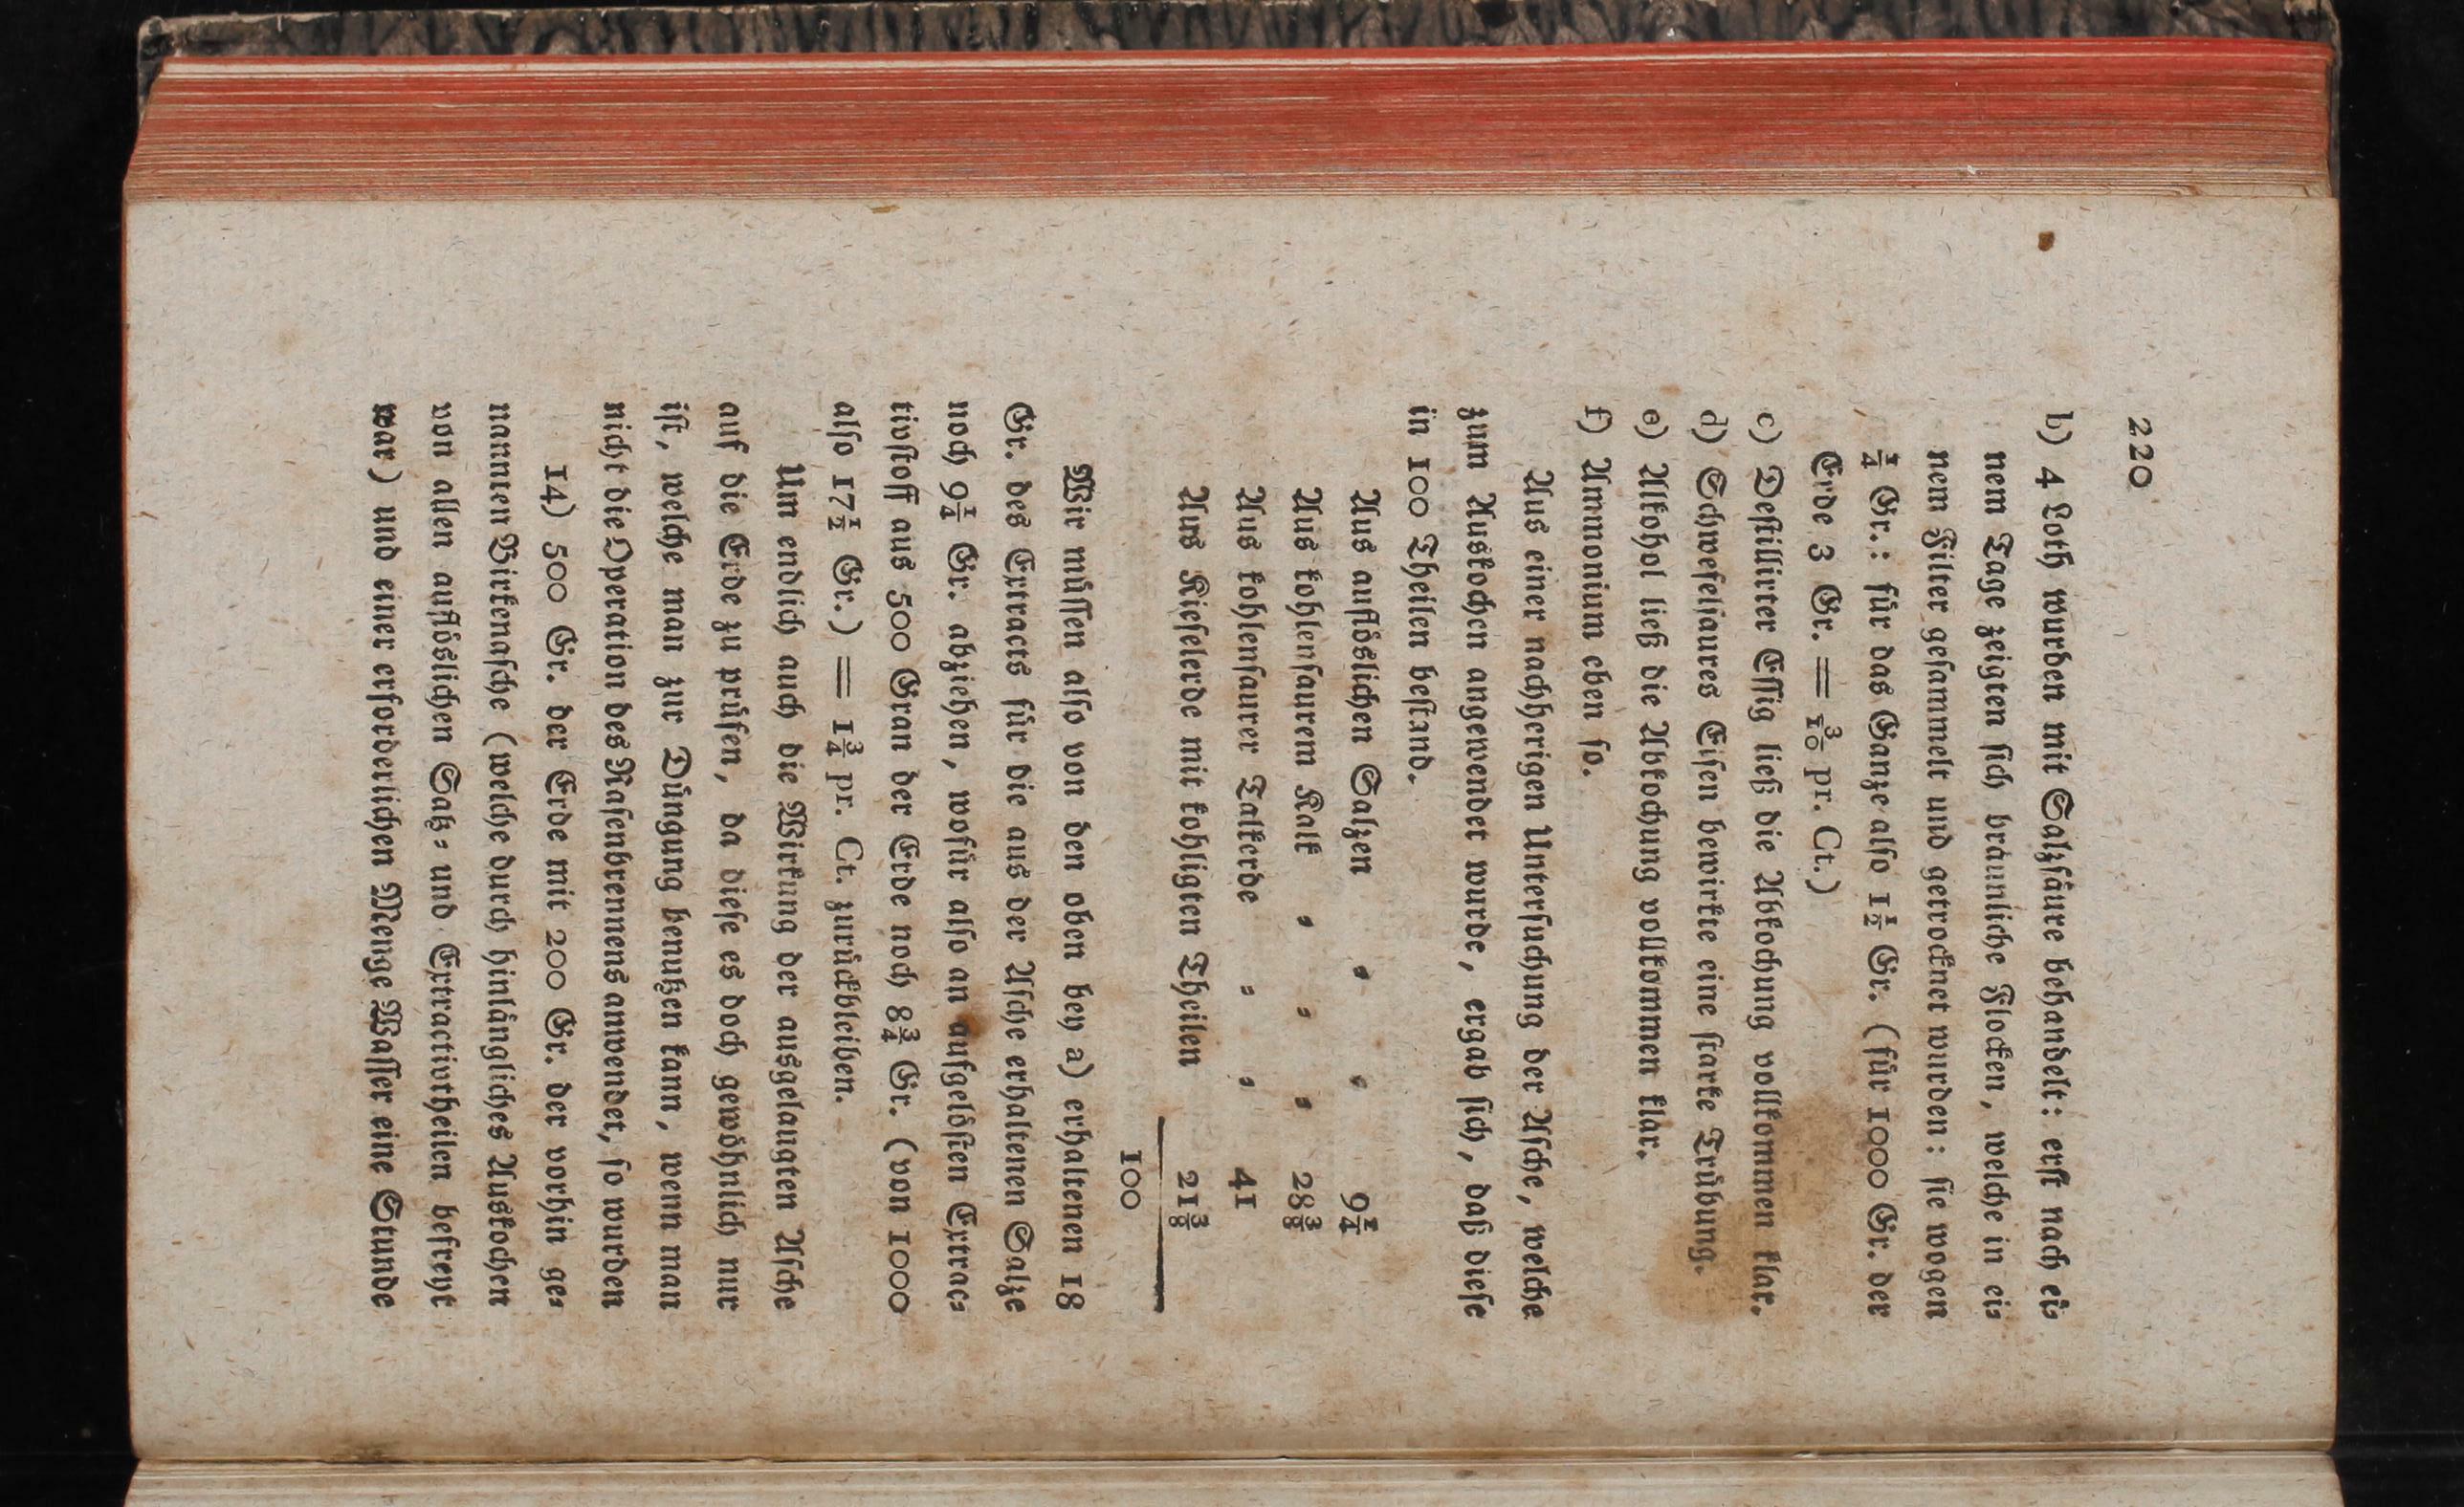 220
b) 4 Loth wurden mit Salzſåure behandelt: erſt nach ei⸗
nem Tage zeigten ſich bråunliche Flocken, welche in ei⸗
nem Filter geſammelt und getrocknet wurden: ſie wogen
¼ Gr.: fůr das Ganze alſo 1½ Gr. (fůr 1000 Gr. der
Erde 3 Gr. = 3/10 pr. Ct.)
c) Deſtillirter Eſſig ließ die Abkochung vollkommen klar.
d) Schwefelſaures Eiſen bewirkte eine ſtarke Trůbung.
e) Alkohol ließ die Abkochung vollkommen klar.
f) Ammonium eben ſo.
Aus einer nachherigen Unterſuchung der Aſche, welche
zum Auskochen angewendet wurde, ergab ſich, daß dieſe
in 100 Theilen beſtand.
Aus auflöslichen Salzen ⸗ ⸗ 9¼
Aus kohlenſaurem Kalk ⸗ ⸗ ⸗ 28⅜
Aus kohlenſaurer Talkerde ⸗ ⸗ 41
Aus Kieſelerde mit kohligten Theilen 21⅜
100
Wir můſſen alſo von den oben bey a) erhaltenen 18
Gr. des Extracts fůr die aus der Aſche erhaltenen Salze
noch 9¼ Gr. abziehen, wofůr alſo an aufgelöſten Extrac⸗
tivſtoff aus 500 Gran der Erde noch 8¾ Gr. (von 1000
alſo 17½ Gr.) = 1¾ pr. Ct. zurůckbleiben.
Um endlich auch die Wirkung der ausgelaugten Aſche
auf die Erde zu průfen, da dieſe es doch gewöhnlich nur
iſt, welche man zur Důngung benutzen kann, wenn man
nicht die Operation des Raſenbrennens anwendet, ſo wurden
14) 500 Gr. der Erde mit 200 Gr. der vorhin ge⸗
nannten Birkenaſche (welche durch hinlångliches Auskochen
von allen auflöslichen Satz⸗ und Extractivtheilen befreyt
war) und einer erforderlichen Menge Waſſer eine Stunde